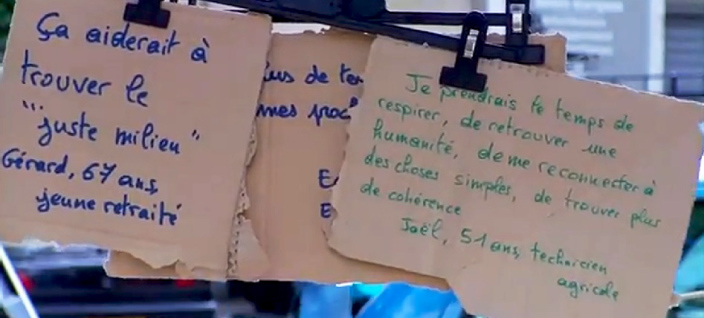 Ça aiderait à
trouver le
"juste milieu"
Gérard, 67 ans,
jeune retraité
de
mes
Je prendrais le temps de
respirer, de retrouver une
humanité, de me reconnecter à
des choses simples, de trouver plus
de cohérence
Joël, 51 ans, technicien
agricole